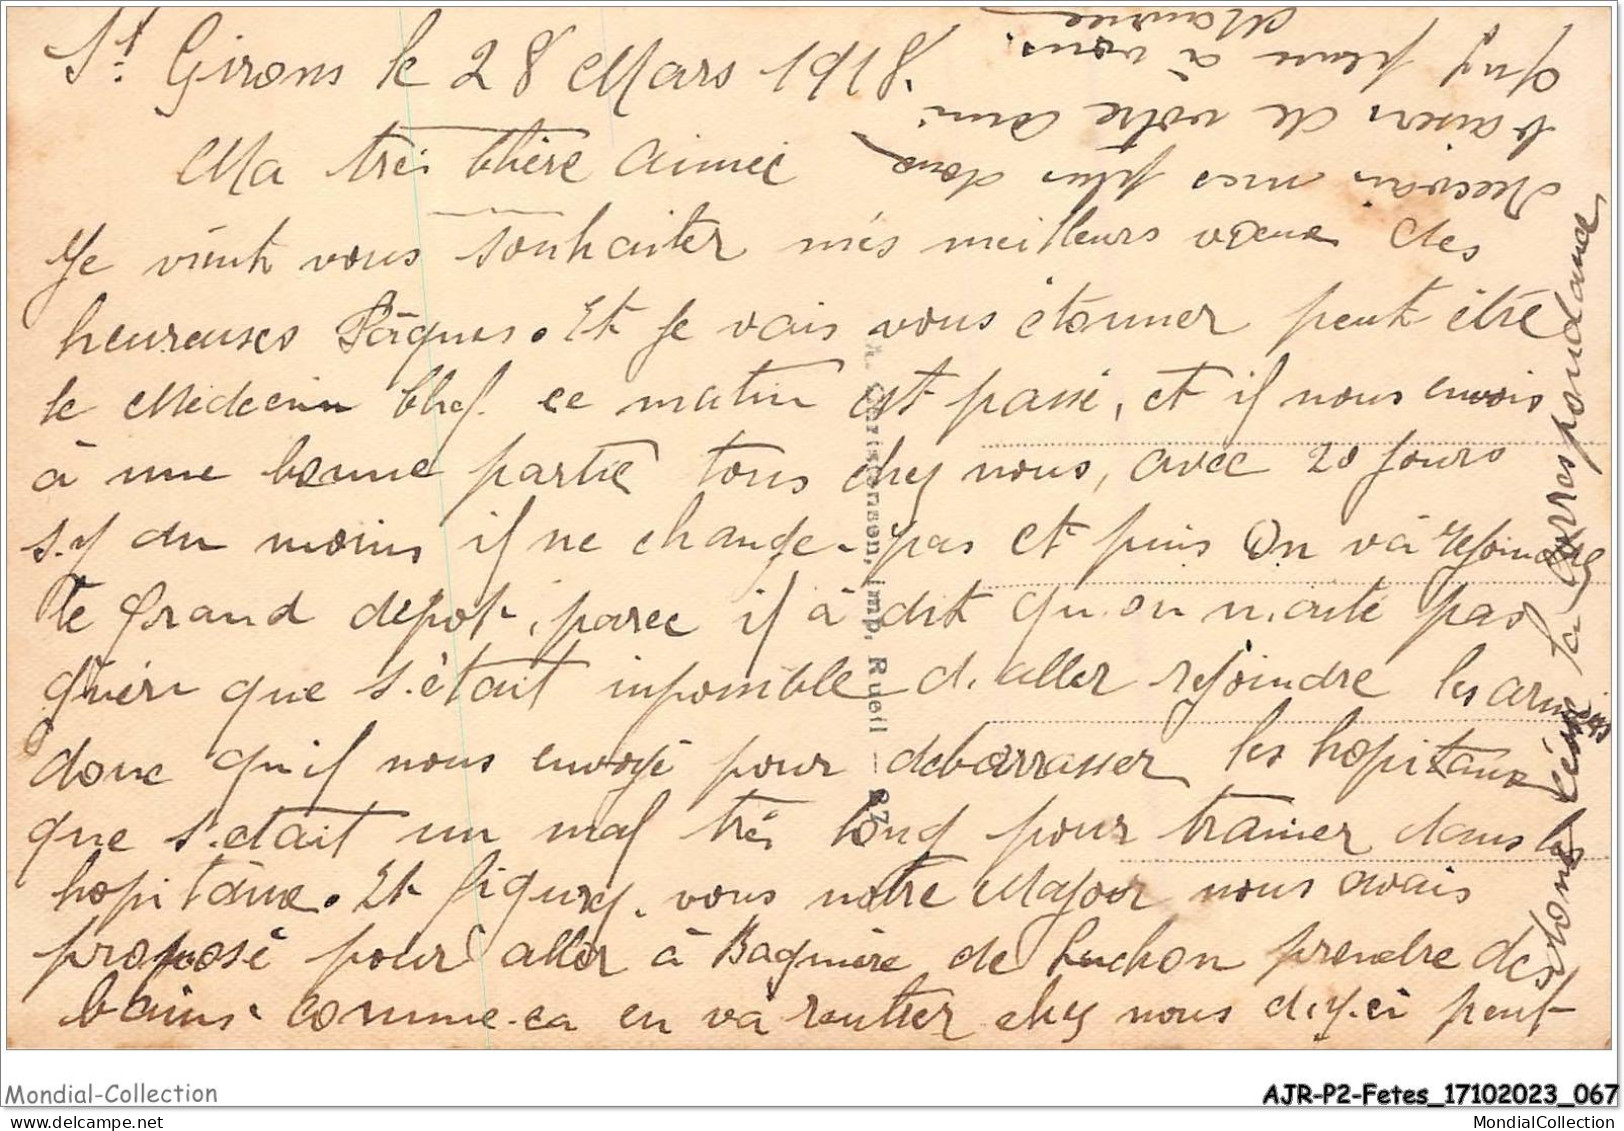 St Girons le 28 Mars 1918.
Ma tres Chère aimée
Je vient vous souhaiter mes meilleurs vœux des
heureuses Pâques. Et Je vais vous étonner peut être
le Médecin Chef. ce matin est passé, et il nous envois
à une bonne partie tous chez nous, avec 20 Jours
s.y du moins il ne change pas et puis On và rejoindre
le Grand dépot, parce il à dit qu.on n. pas
guéri que s.était imposible d.aller rejoindre les armées
donc qu'il nous envoyé pour debarrasser les hopitaux
que s.etait un mal trés long pour trainer dans les
hopitaux. Et figurez. vous notre Major nous avais
proposé pour aller à Bagnière de Luchon prendre des
bains. comme ca en và rentrer chez nous d.y.ci peut
dans la Correspondance
Recevais mes plus doux
baisers de votre ami
Guy pense à vous.
Maurice
A. Christenson, imp. Rueil - 27
Mondial-Collection
AJR-P2-Fetes_17102023_067
www.mondial-collection.com
MondialCollection